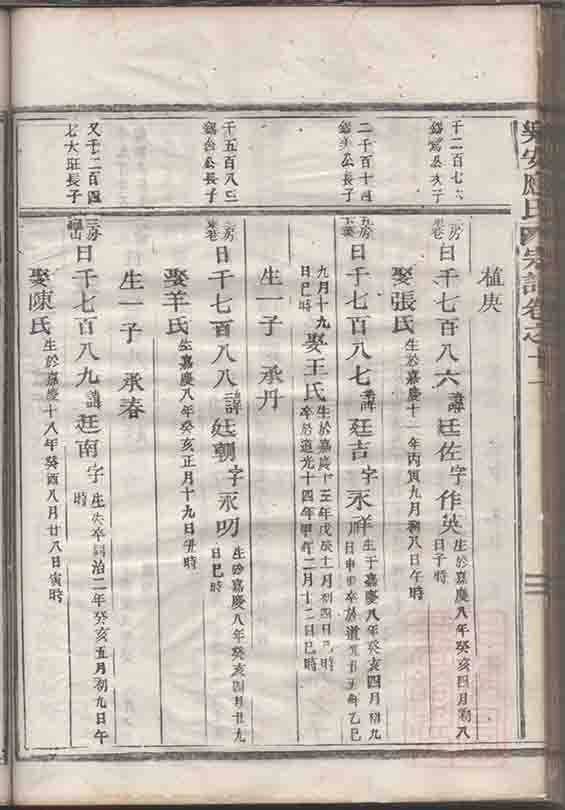 樂安陳氏宗譜卷之十一
千二百七六
植庚
日千七百八六 諱廷佐字作英 生於嘉慶八年癸亥四月初八日子時
娶張氏 生於嘉慶十一年丙寅九月初八日午時
二千百十四
日千七百八七 諱廷吉字永祥 生于嘉慶八年癸亥四月初九日申時卒於道光 年乙巳
九月十九日巳時 娶王氏 生於嘉慶十三年戊辰十一月初四日巳時卒於道光十四年甲午二月十二日巳時
生一子 承丹
千五百八三
公長子
日千七百八八 諱廷朝字永明 生於嘉慶八年癸亥四月廿九日巳時
娶羊氏 生於嘉慶八年癸亥正月十九日丑時
生一子 承春
又千二百四
七大莊長子
三房
日千七百八九 諱廷南字 生失卒同治二年癸亥五月初九日午時
娶陳氏 生於嘉慶十八年癸酉八月廿八日寅時